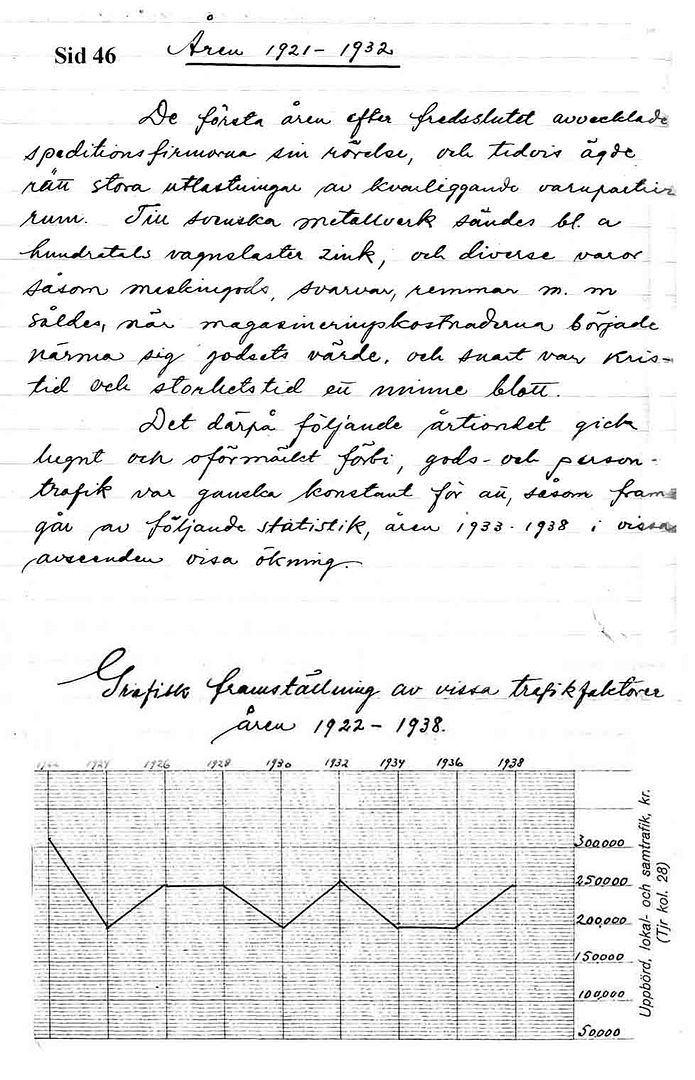 Sid 46 Åren 1921 - 1932
De första åren efter fredsslutet avvecklade
speditionsfirmorna sin rörelse, och tidvis ägde
rätt stora utlastningar av kvarliggande varupartier
rum. Till svenska metallverk sändes bl. a
hundratals vagnslaster zink, och diverse varor
såsom maskingods, svarvar, remmar m. m
såldes, när magasineringskostnaderna började
närma sig godsets värde, och snart var kris-
tid och storhetstid ett minne blott.
Det därpå följande årtiondet gick
lugnt och oförmärkt förbi, gods- och person-
trafik var ganska konstant för att, såsom fram
går av följande statistik, åren 1933 - 1938 i vissa
avseenden visa ökning.
Grafisk framställning av vissa trafikfaktorer
åren 1922 - 1938.
1922 1924 1926 1928 1930 1932 1934 1936 1938
300,000
250000
200,000
150000
100,000
50,000
Uppbörd, lokal- och samtrafik, kr.
(Tjr kol. 28)